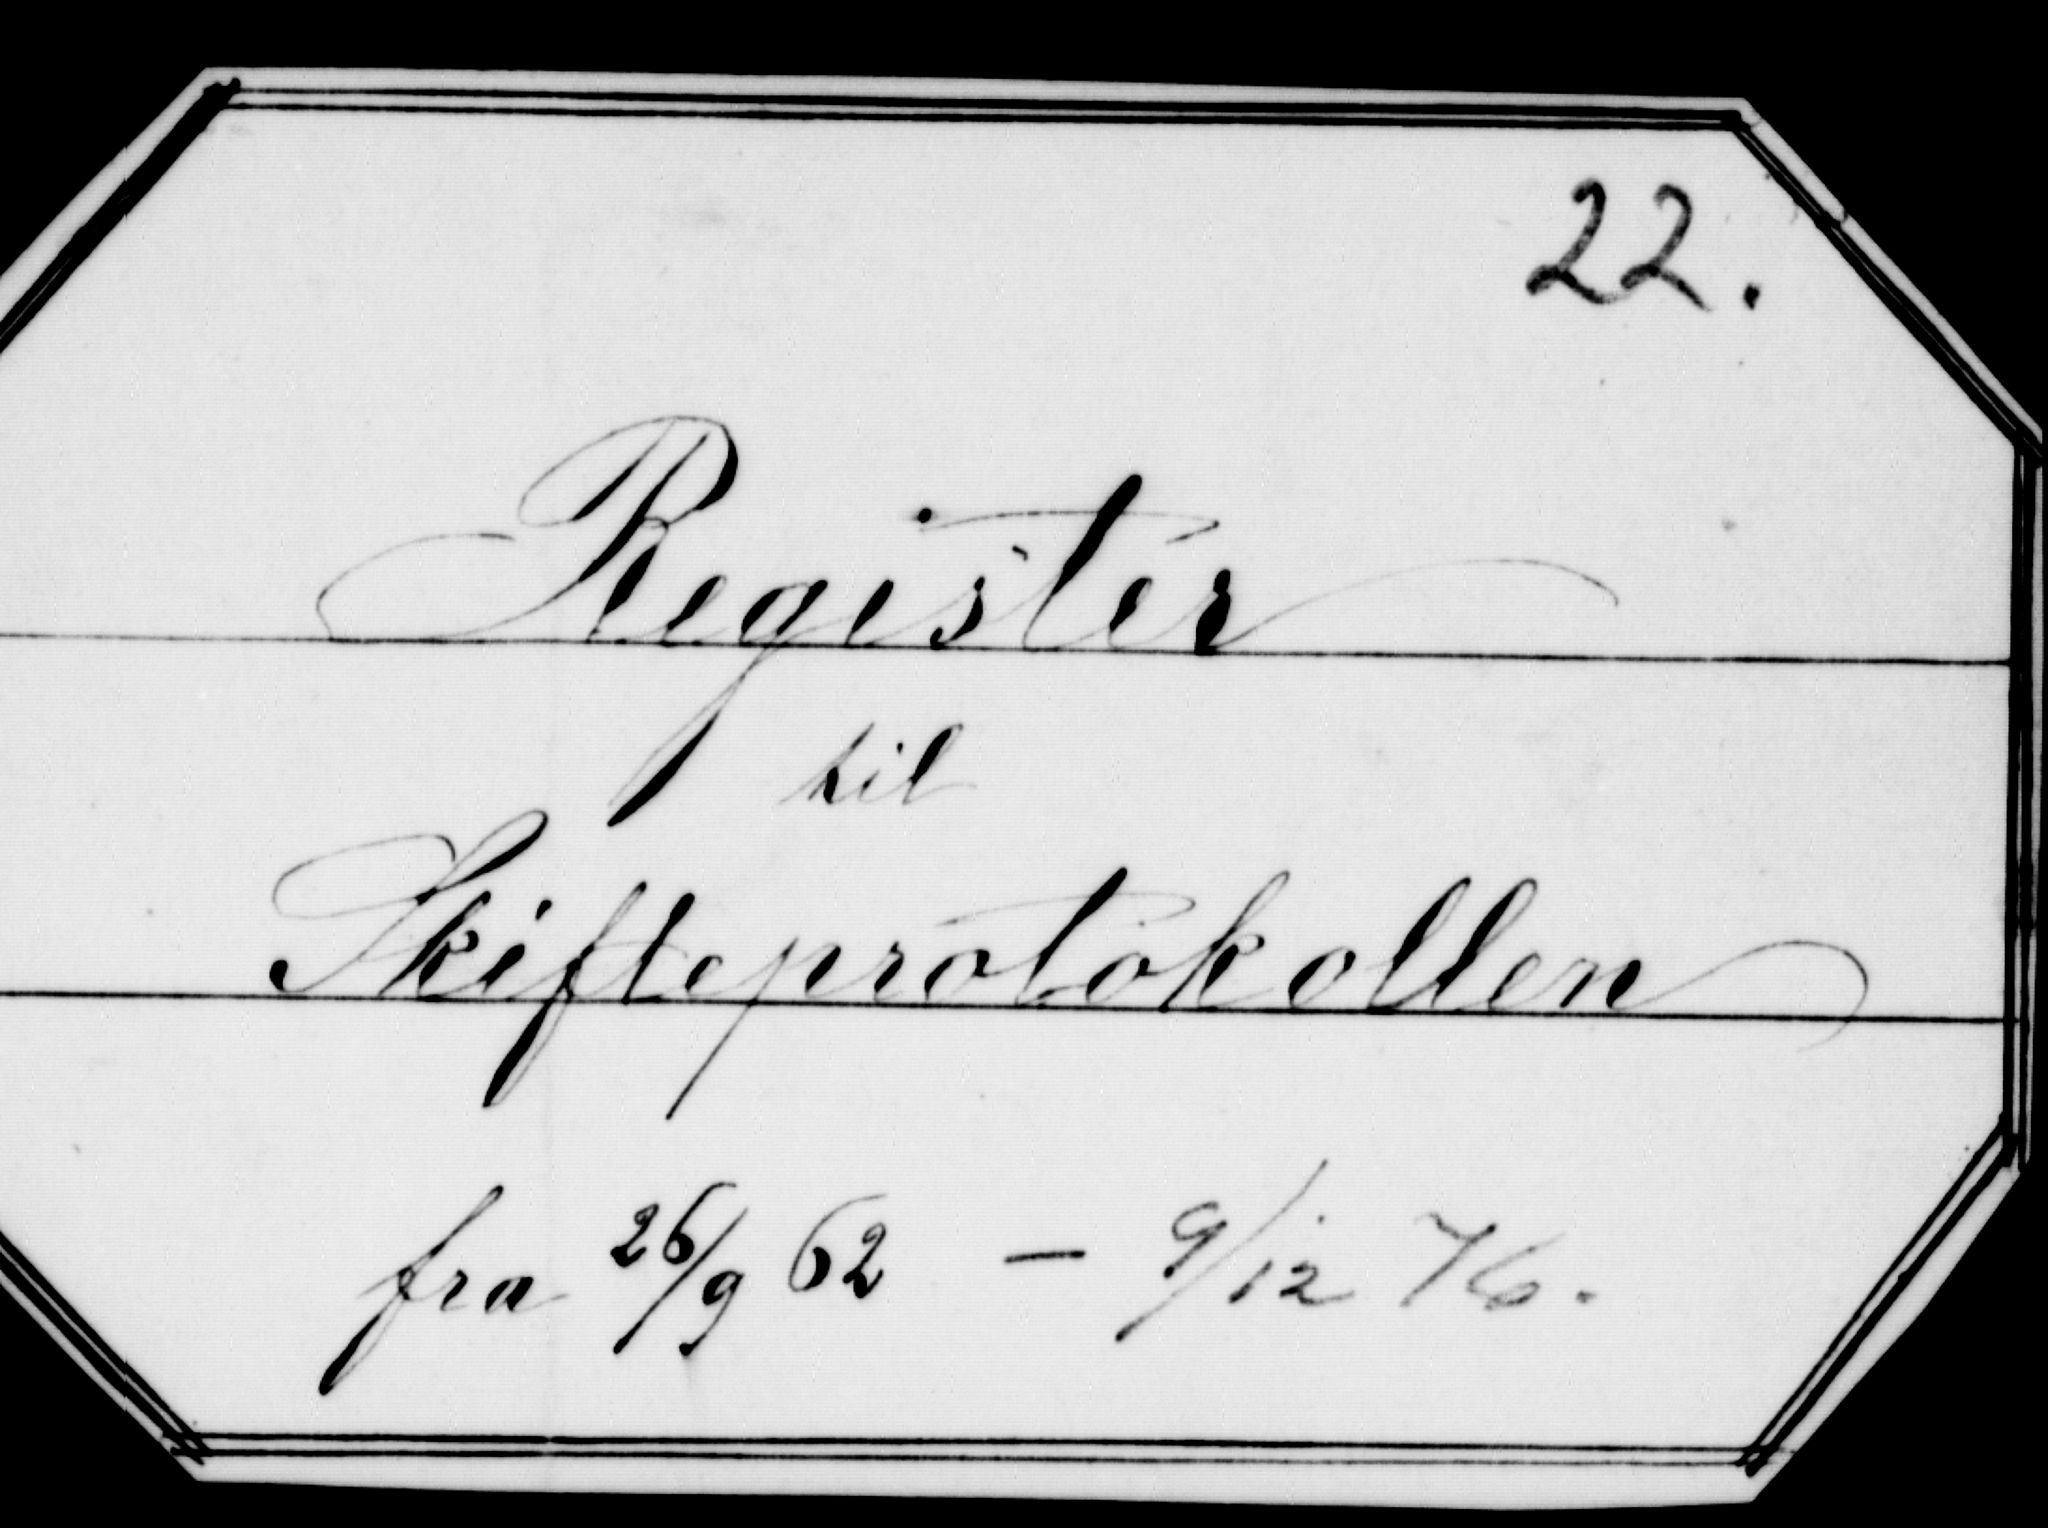 22.
Register
til
Skifteprotokollen
fra 26/9 62 — 9/12 76.